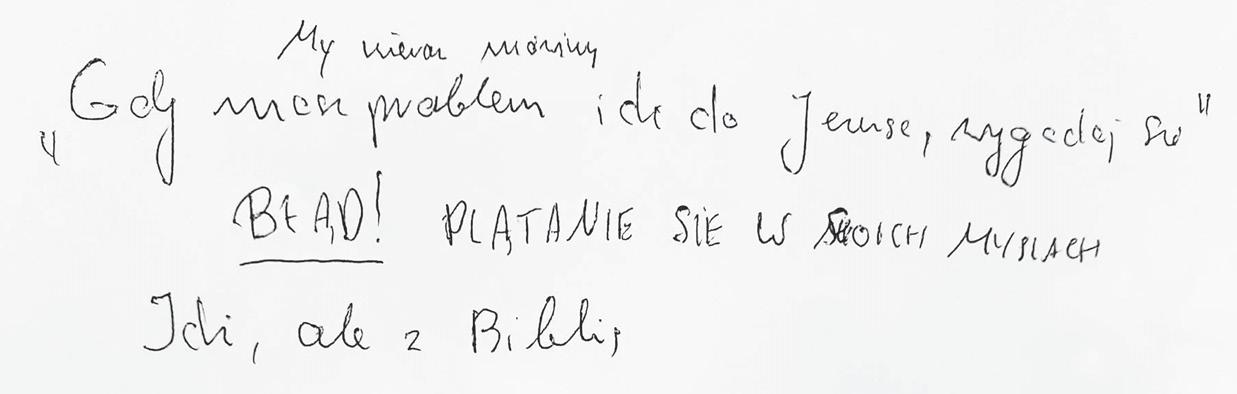 My nieraz mówimy
„Gdy masz problem idź do Jezusa, wygadaj się"
BŁĄD! PLĄTANIE SIĘ W SWOICH MYŚLACH
Idź, ale z Biblią